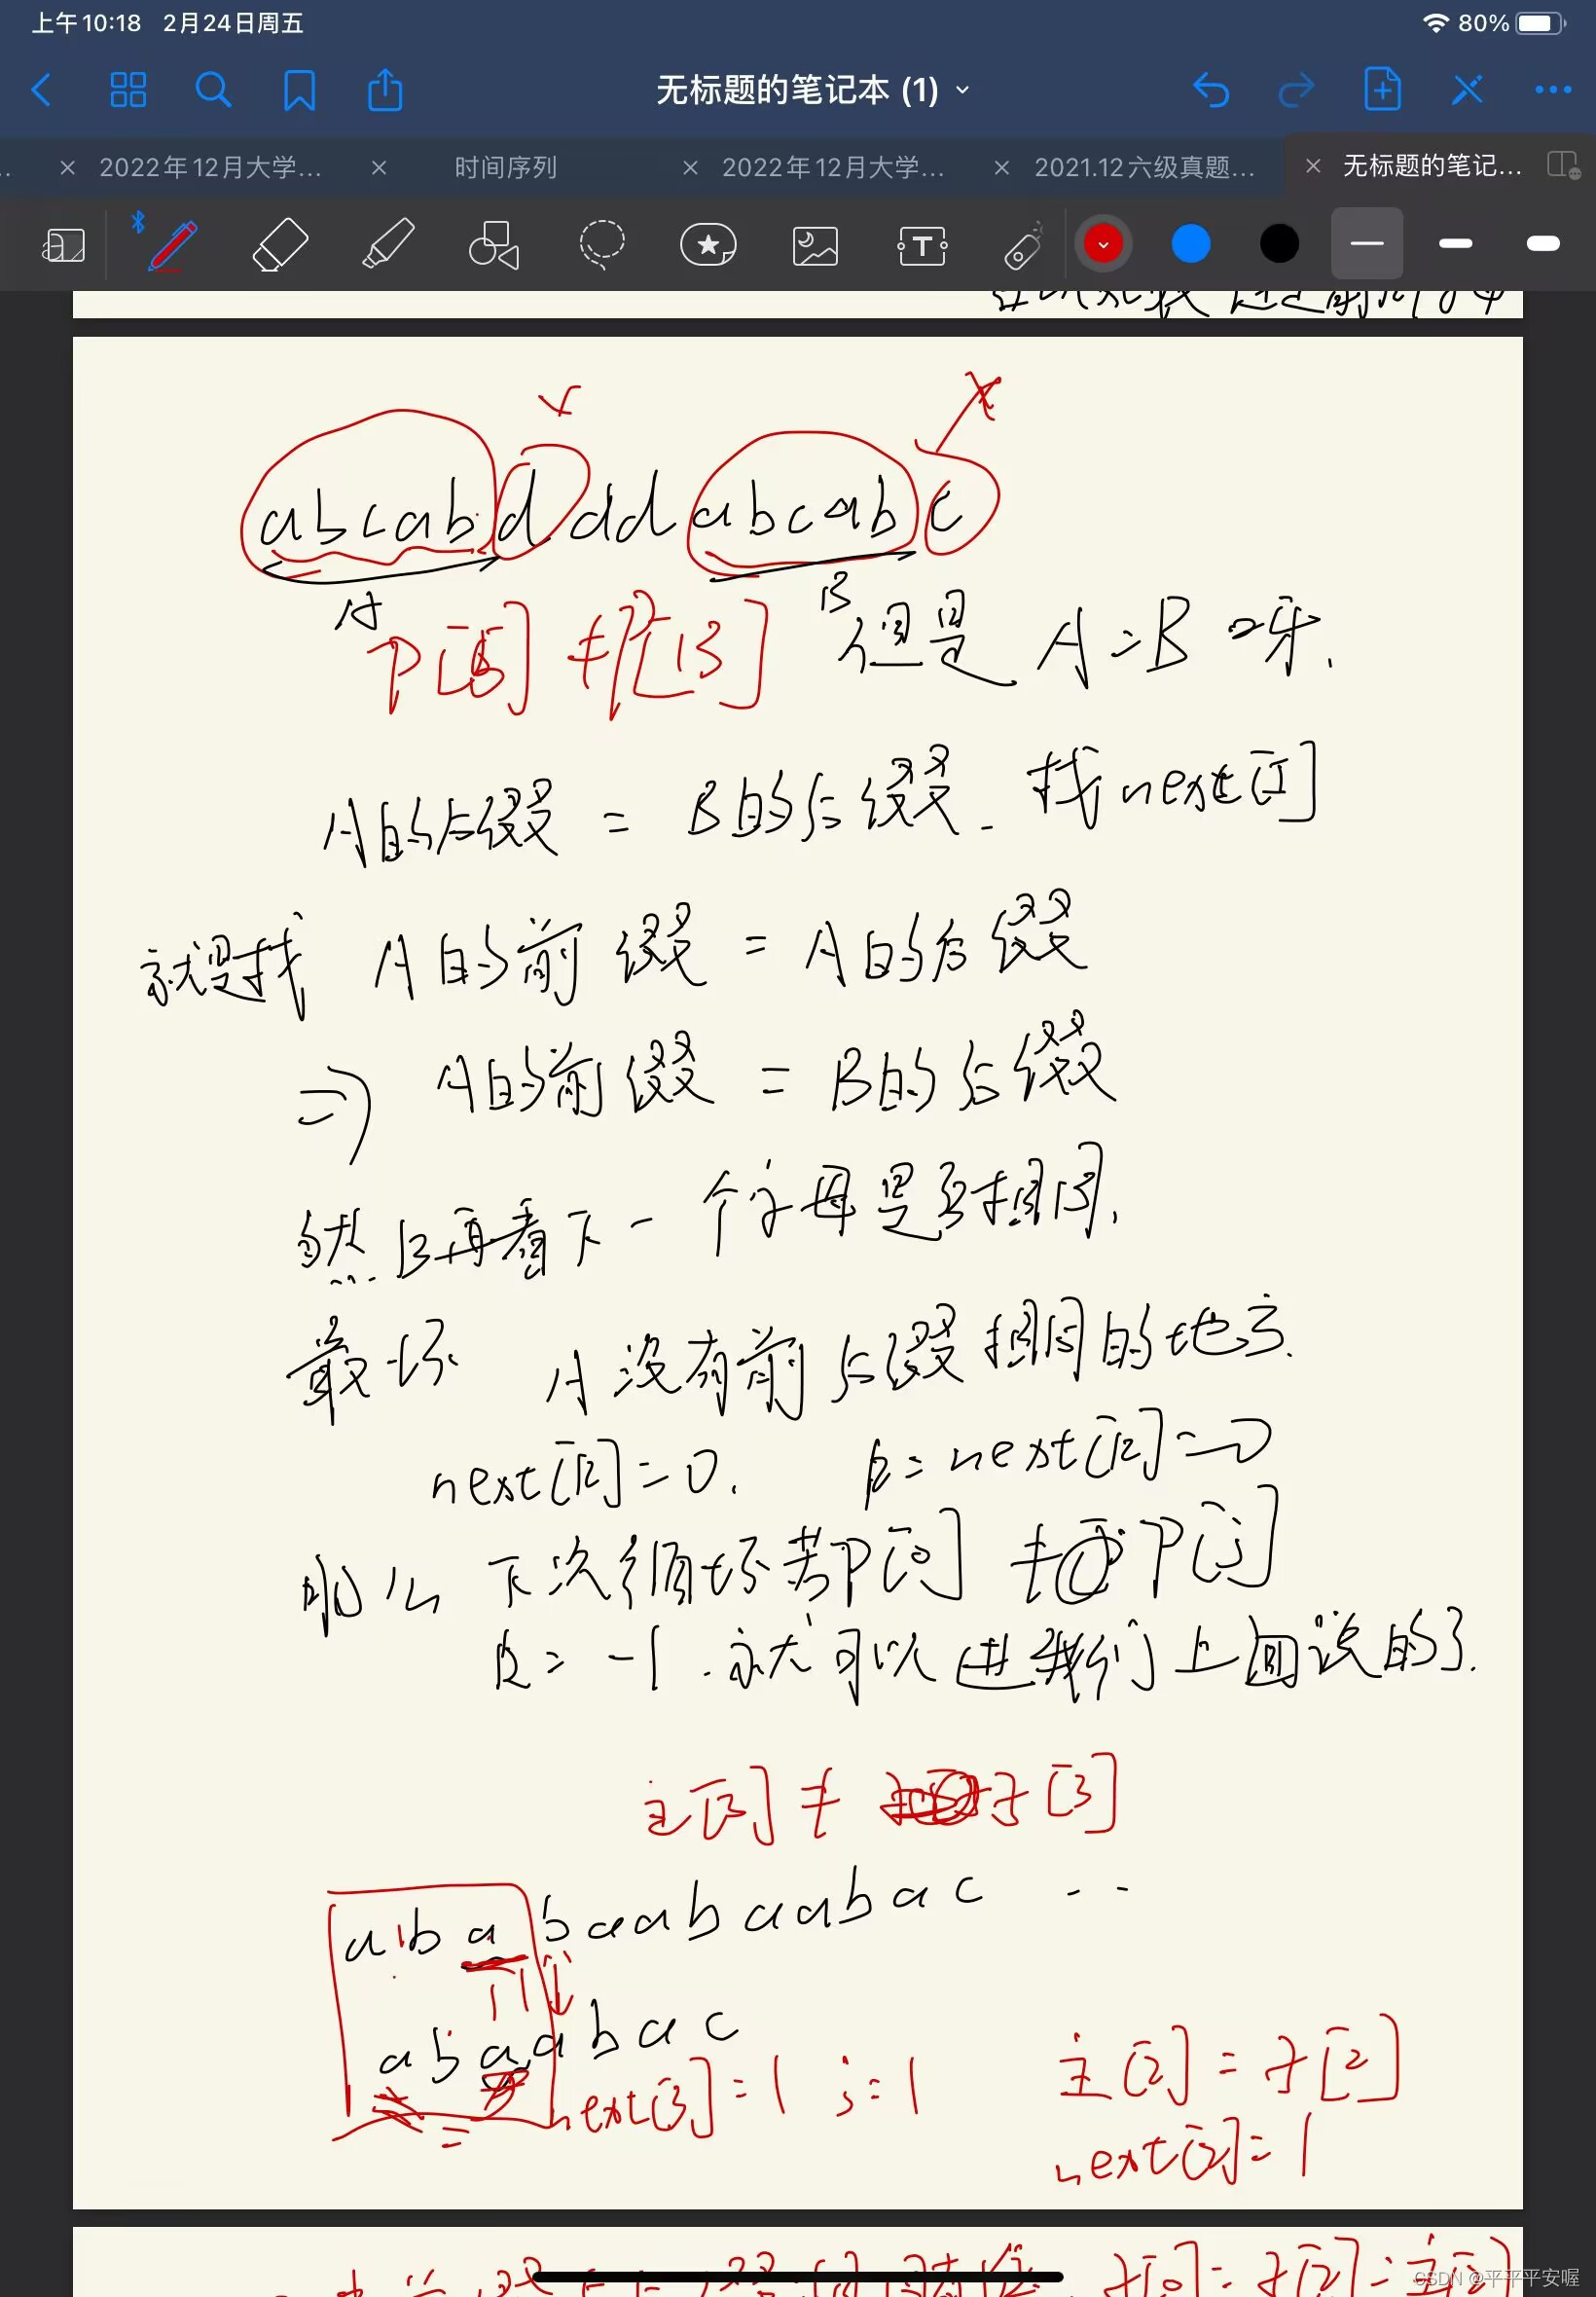 上午10:18 2月24日周五 80%
无标题的笔记本 (1)
2022年12月大学... 时间序列 2022年12月大学... 2021.12六级真题... 无标题的笔记...
abcabdddabcabc
A B
P[5] ≠ P[13] 但是 A=B 呀.
A的后缀 = B的后缀. 找next[]
就是找 A的前缀 = A的后缀
=> A的前缀 = B的后缀
然后再看下一个字母是否相同.
最坏 A没有前后缀相同的地方.
next[k]=0. k=next[k]=0
那么下次循环若P[0] ≠ P[j]
k=-1.就可以进我们上面说的了.
主[3] ≠ 子[3]
ababaabaabac ..
abaabac
next[3]=1 j=1 主[2]=子[2]
next[2]=1
CSDN @平平平安喔